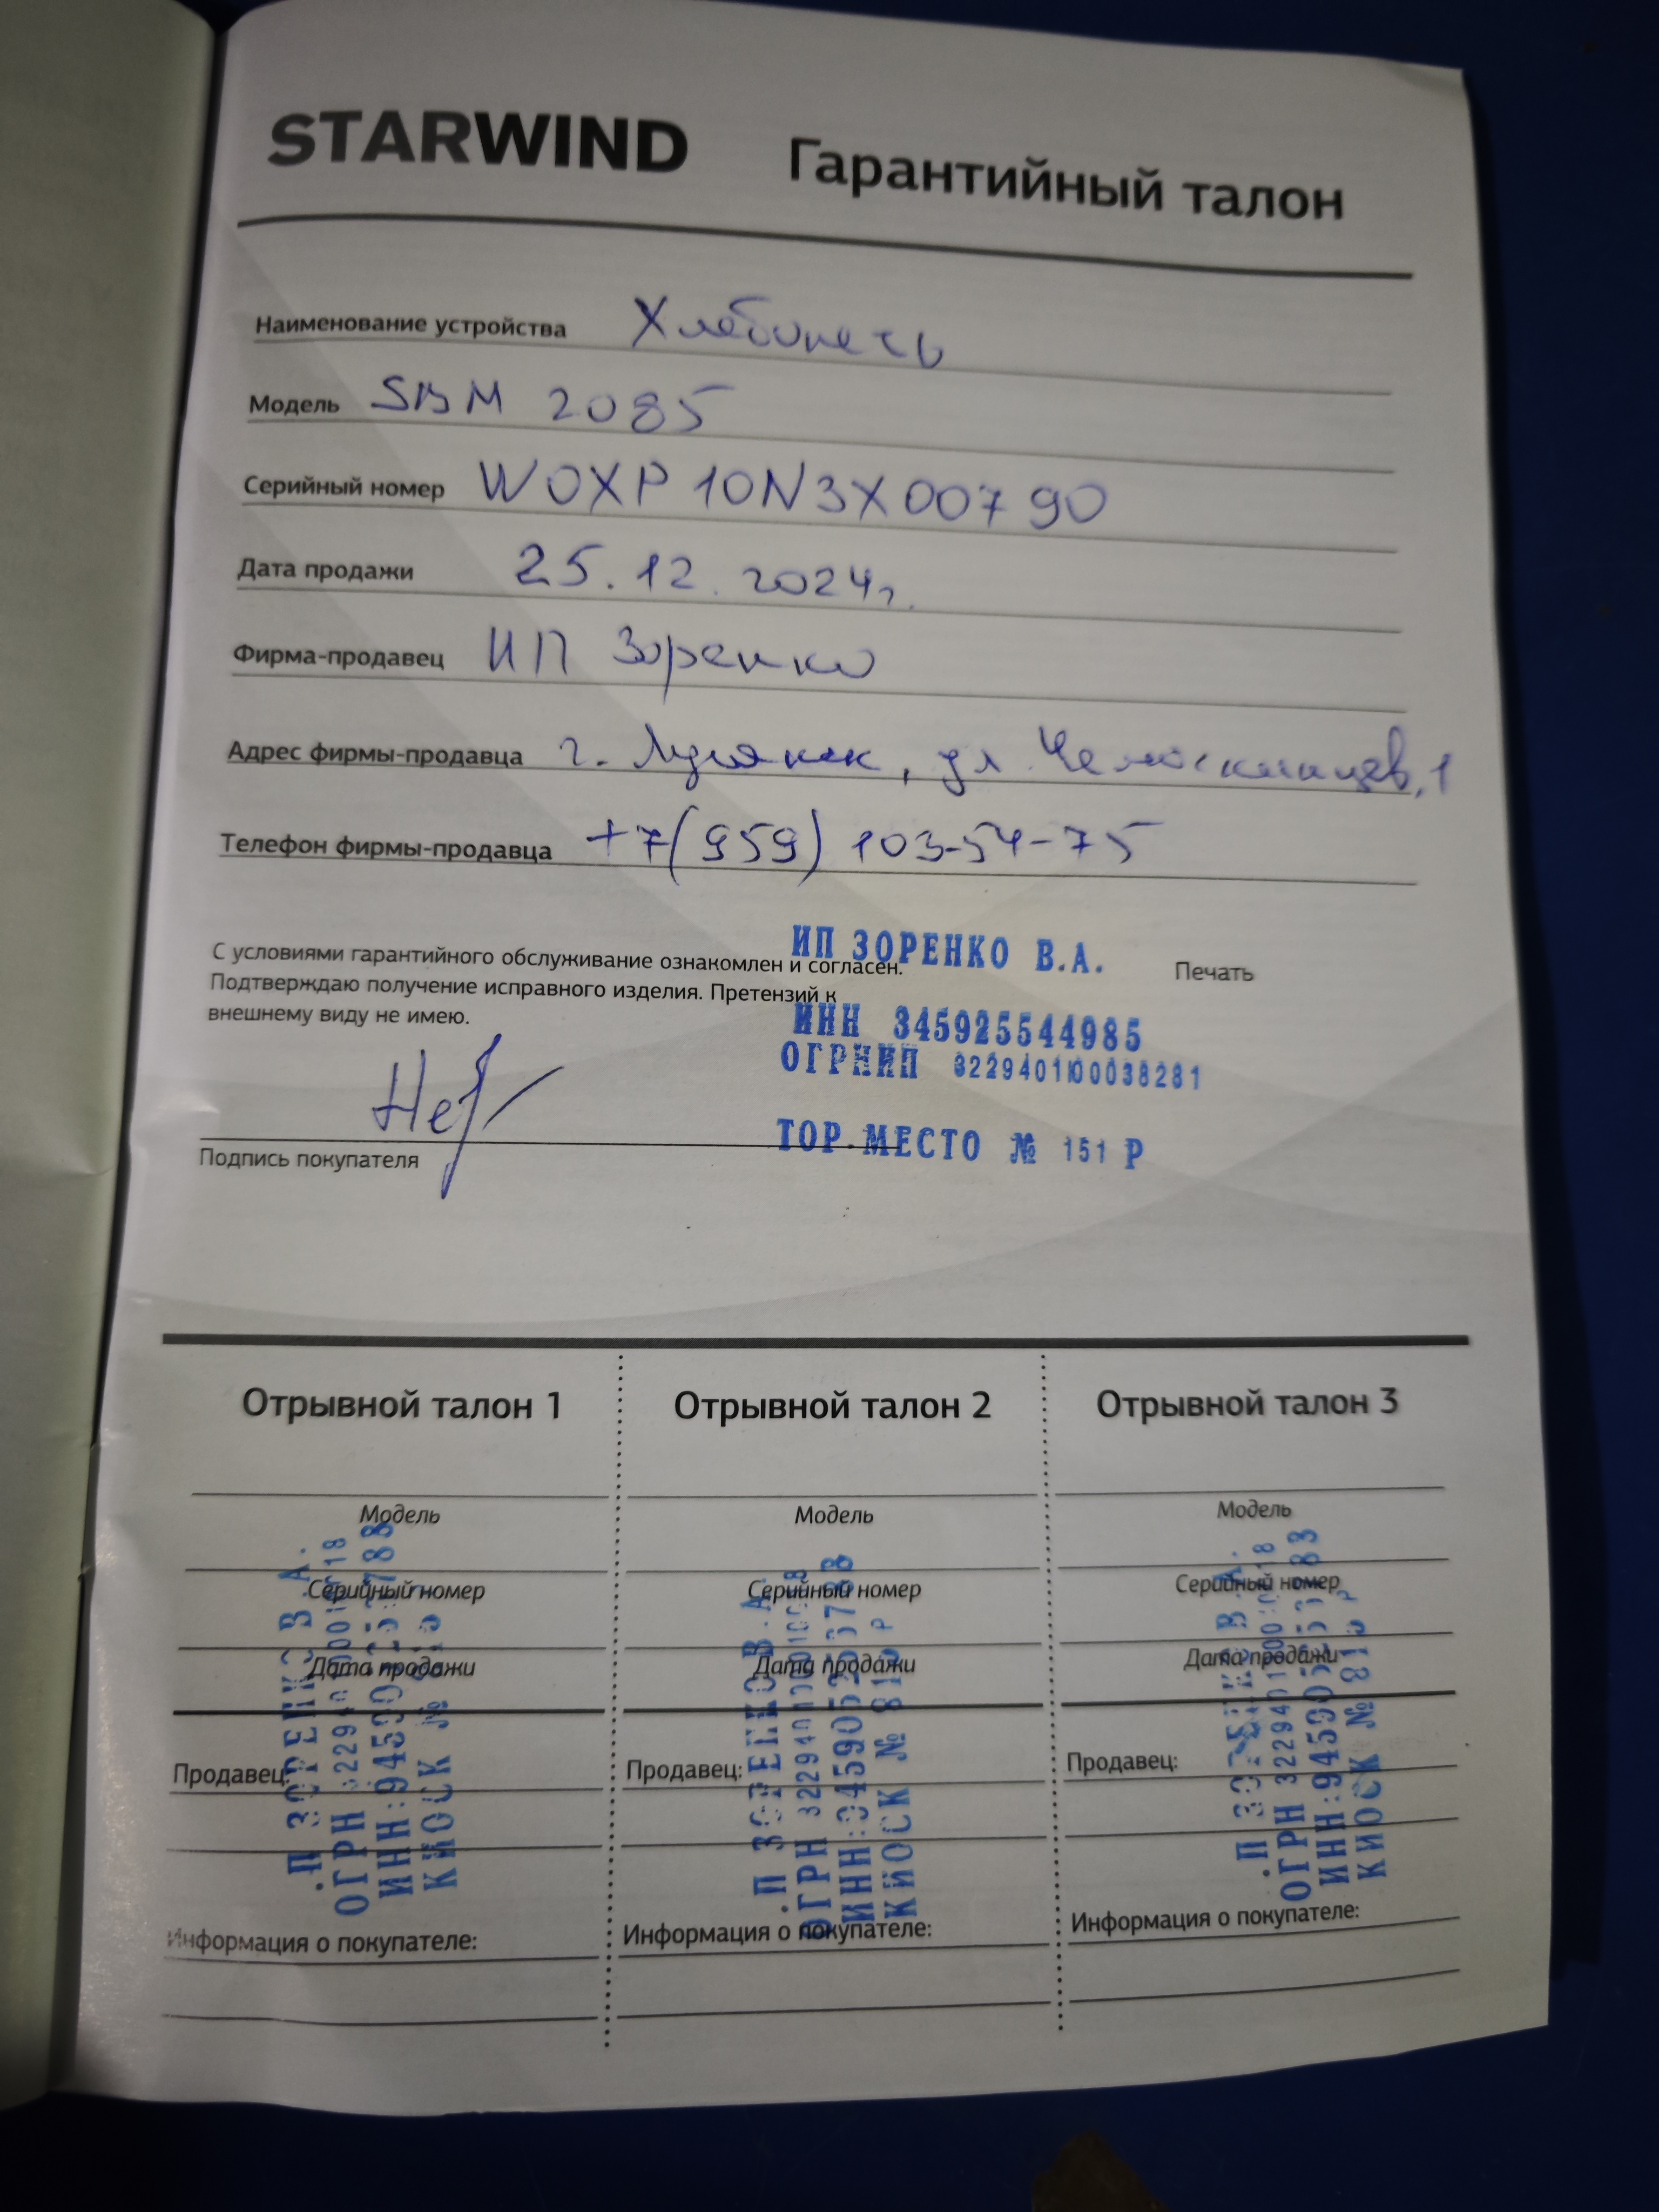 STARWIND Гарантийный талон
Наименование устройства Хлебопечь
Модель SBM 2085
Серийный номер W0XP10N3X00790
Дата продажи 25.12.2024г.
Фирма-продавец ИП Зоренко
Адрес фирмы-продавца г. Луганск, ул. Челюскинцев, 1
Телефон фирмы-продавца +7(959) 103-54-75
С условиями гарантийного обслуживание ознакомлен и согласен.
Подтверждаю получение исправного изделия. Претензий к
внешнему виду не имею.
ИП ЗОРЕНКО В.А.
Печать
ИНН 345925544985
ОГРНИП 322940100038281
ТОР.МЕСТО № 151 Р
Подпись покупателя
Отрывной талон 1
Модель
Серийный номер
Дата продажи
Продавец:
ОГРН
ИНН:
КИОСК №
Информация о покупателе:
Отрывной талон 2
Модель
Серийный номер
Дата продажи
Продавец:
ОГРН
ИНН:
КИОСК №
Информация о покупателе:
Отрывной талон 3
Модель
Серийный номер
Дата продажи
Продавец:
ОГРН
ИНН:
КИОСК №
Информация о покупателе: